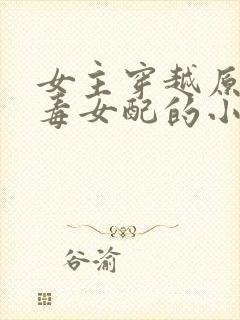 女主穿越原
毒女配的小
谷渝